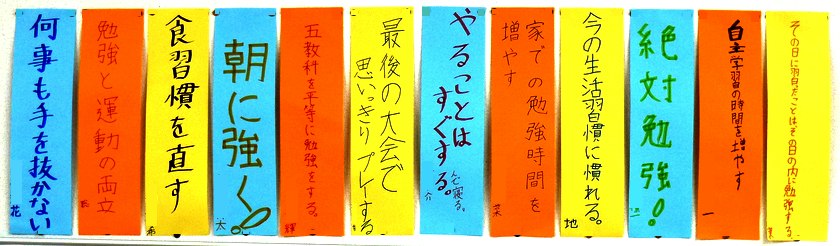 その日に習ったことはその日の内に勉強する
自主学習の時間を増やす
一
絶対勉強!
今の生活習慣に慣れる。
地
家での勉強時間を
増やす
菜
やることは
すぐする。
介
最後の大会で
思いっきりプレイする
五教科を平等に勉強をする。
輝
朝に強く!
太
食習慣を直す
希
勉強と運動の両立
何事も手を抜かない
花